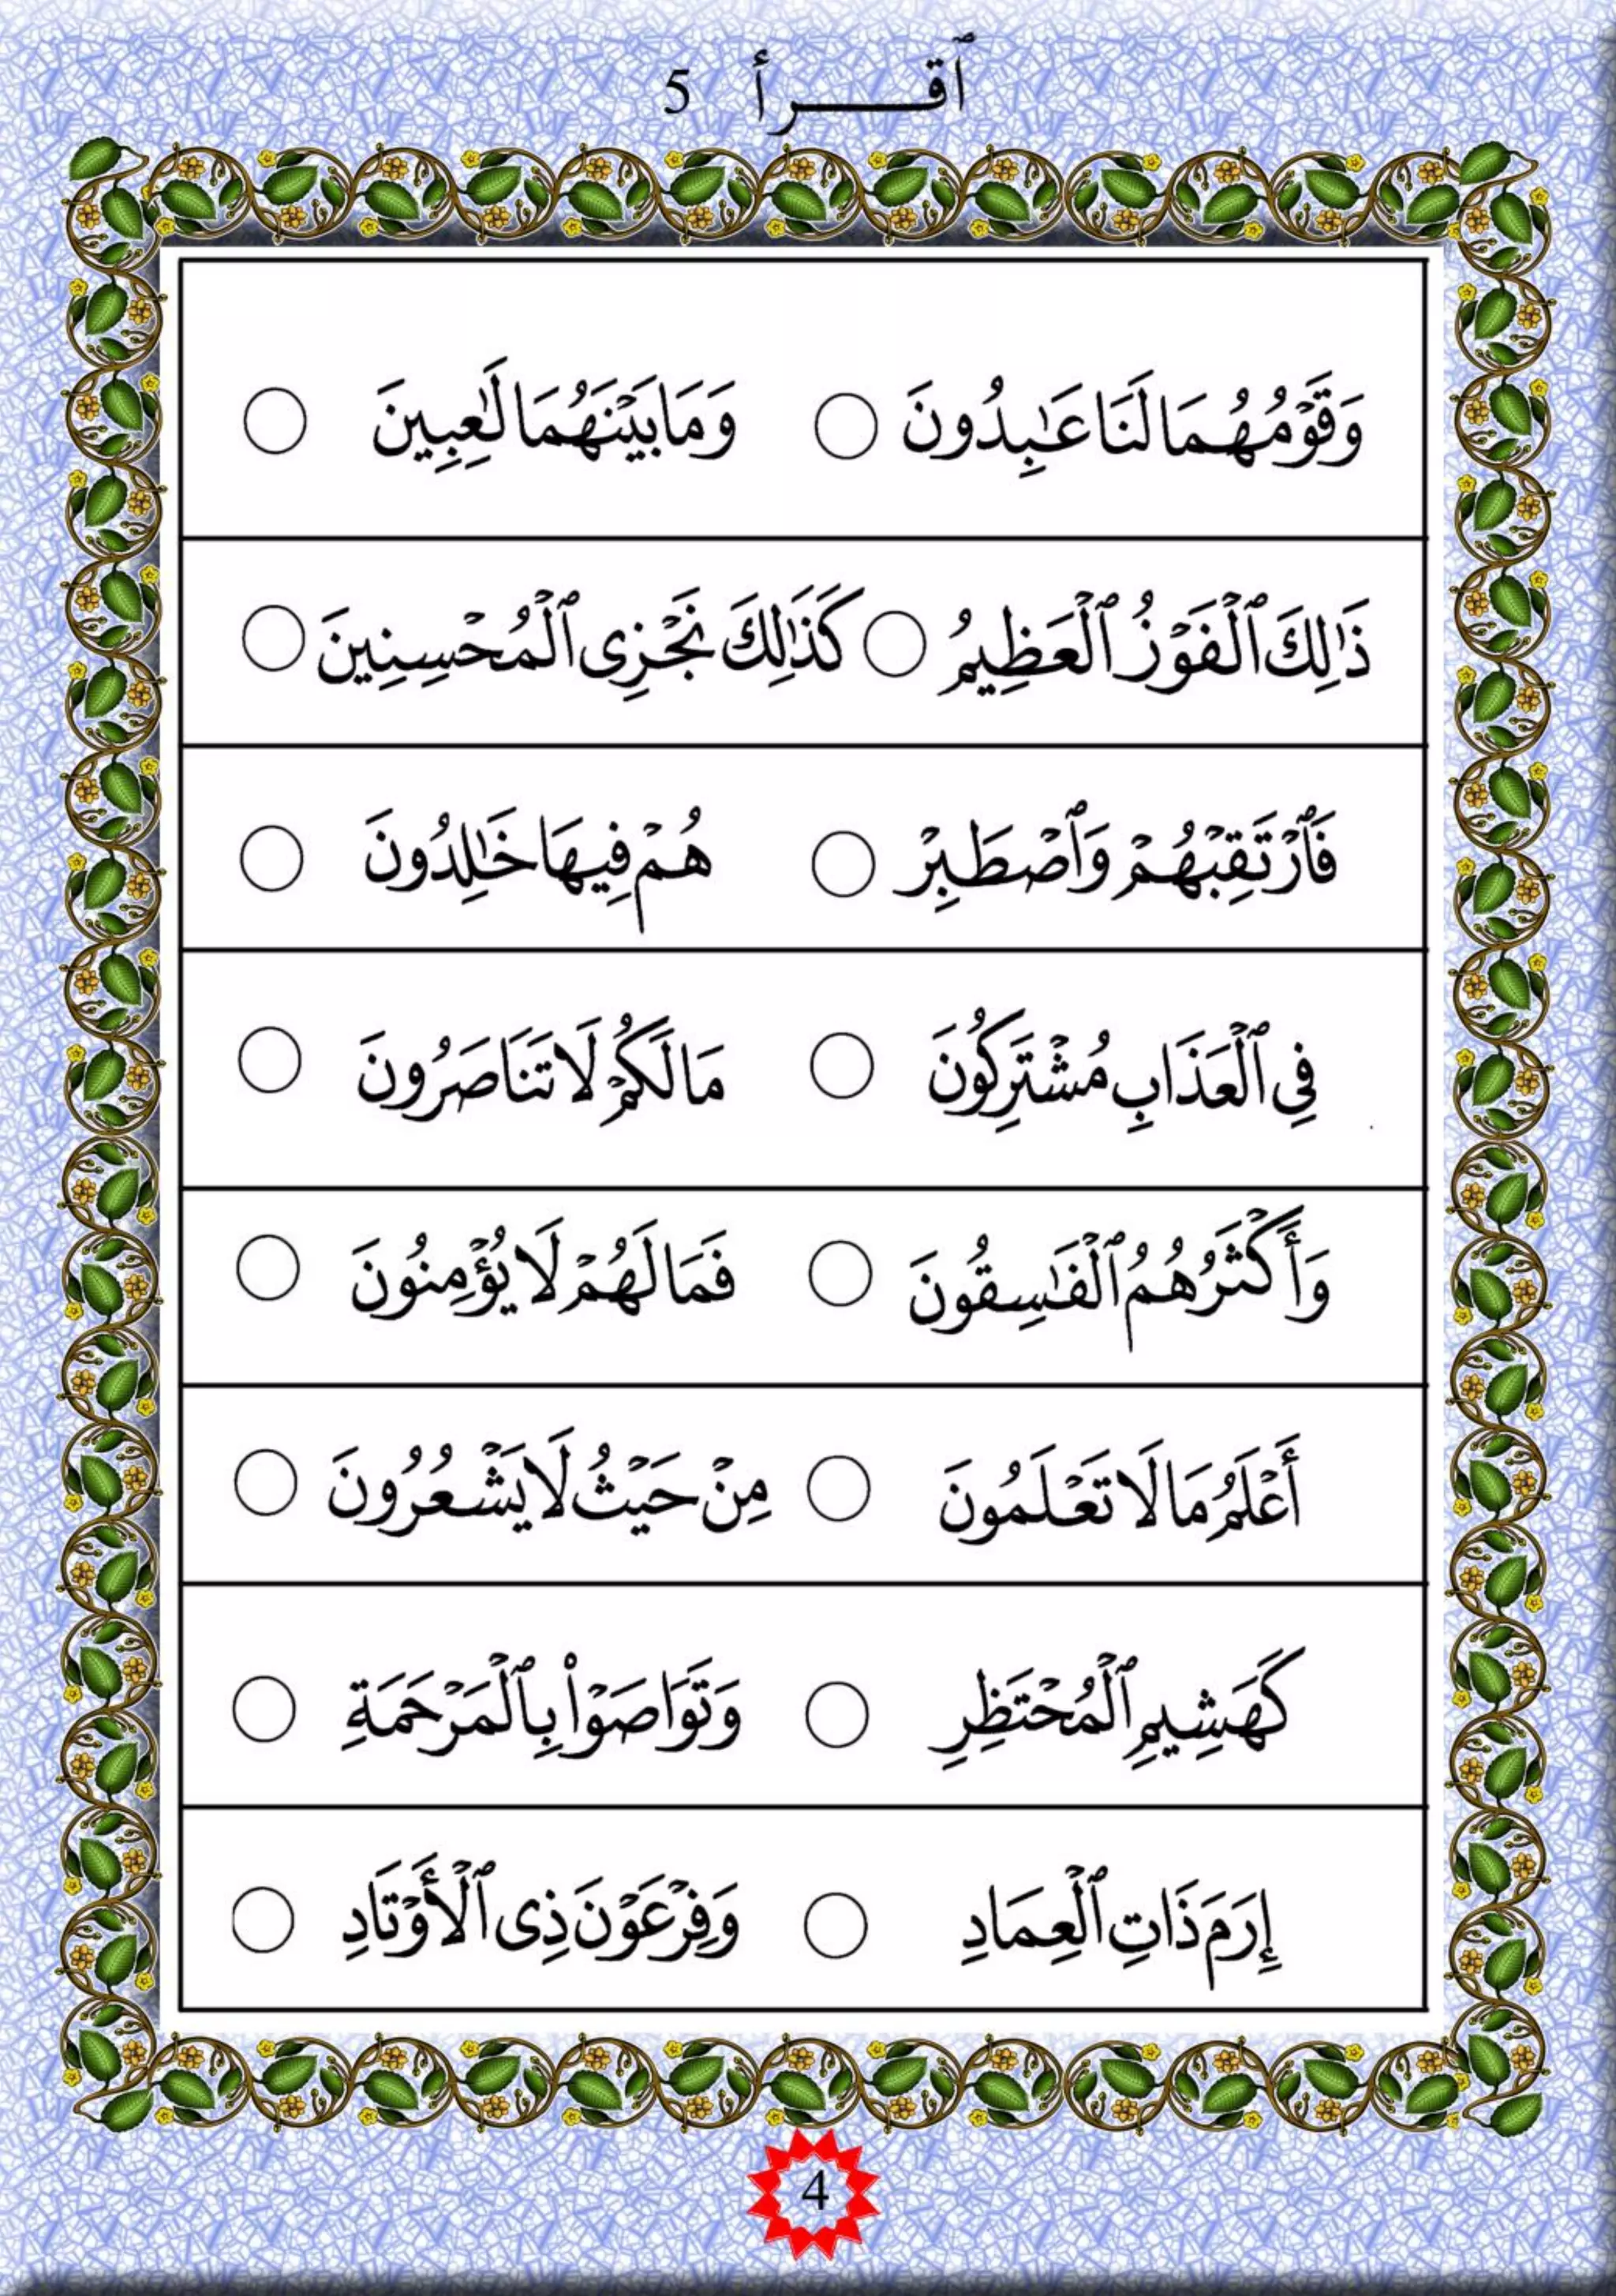 ٱقـــــرأ 5
وَقَوْمُهُمَا لَنَا عَـٰبِدُونَ ○ وَمَا بَيْنَهُمَا لَـٰعِبِينَ ○
ذَٰلِكَ ٱلْفَوْزُ ٱلْعَظِيمُ ○ كَذَٰلِكَ نَجْزِى ٱلْمُحْسِنِينَ ○
فَٱرْتَقِبْهُمْ وَٱصْطَبِرْ ○ هُمْ فِيهَا خَـٰلِدُونَ ○
فِى ٱلْعَذَابِ مُشْتَرِكُونَ ○ مَا لَكُمْ لَا تَنَاصَرُونَ ○
وَأَكْثَرُهُمُ ٱلْفَـٰسِقُونَ ○ فَمَا لَهُمْ لَا يُؤْمِنُونَ ○
أَعْلَمُ مَا لَا تَعْلَمُونَ ○ مِنْ حَيْثُ لَا يَشْعُرُونَ ○
كَهَشِيمِ ٱلْمُحْتَظِرِ ○ وَتَوَاصَوْا۟ بِٱلْمَرْحَمَةِ ○
إِرَمَ ذَاتِ ٱلْعِمَادِ ○ وَفِرْعَوْنَ ذِى ٱلْأَوْتَادِ ○
4